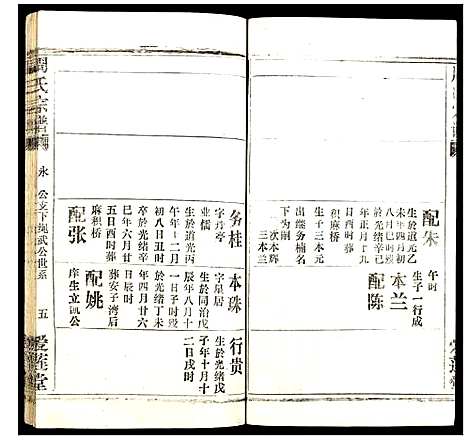 配朱
生於道光乙
未年四月初
八日巳时殁
於光绪辛己
年正月十九
日酉时葬
积麻桥
生子三本元
出继务楠名
下为嗣
次本辉
三本兰
午时
生子一行成
本兰
配陈
周氏宗谱
永 公支下绳武公世系
五
爱莲堂
务桂
字丹亭
业儒
生於道光丙
午年十二月
初八日丑时
卒於光绪辛
巳年六月廿
五日酉时葬
麻积桥
配张
本珠
字星居
生於同治戊
辰年八月十
一日子时殁
於光绪丁未
年四月廿六
日辰时
葬安子湾后
配姚
庠生立凯公
行贵
生於光绪戊
子年十月十
二日戌时